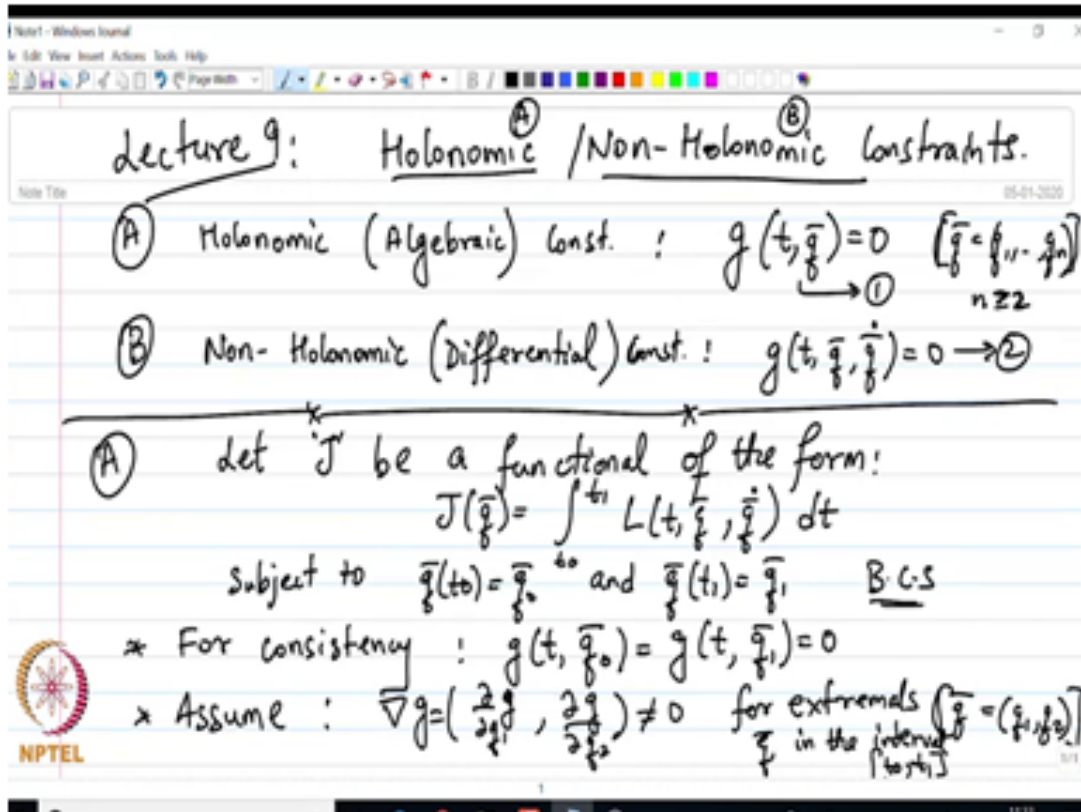 Note1 - Windows Journal
Edit View Insert Actions Tools Help
Page Width
B I
Lecture 9: Holonomic Ⓐ / Non-Holonomic Ⓑ Constraints.
Note Title 05-01-2020
Ⓐ Holonomic (Algebraic) Const. : g(t, q̄) = 0 [q̄ = q₁, .. , qₙ]
→ ① n ≥ 2
Ⓑ Non-Holonomic (Differential) Const. : g(t, q̄, q̄̇) = 0 → ②
Ⓐ Let 'J' be a functional of the form:
J(q̄) = ∫_{t₀}^{t₁} L(t, q̄, q̄̇) dt
Subject to q̄(t₀) = q̄₀ and q̄(t₁) = q̄₁ B.C.S
* For consistency : g(t, q̄₀) = g(t, q̄₁) = 0
* Assume : ∇g = (∂g/∂q₁, ∂g/∂q₂) ≠ 0 for extremals [q̄ = (q₁, q₂)]
q̄ in the interval
[t₀, t₁]
NPTEL
1/1
1